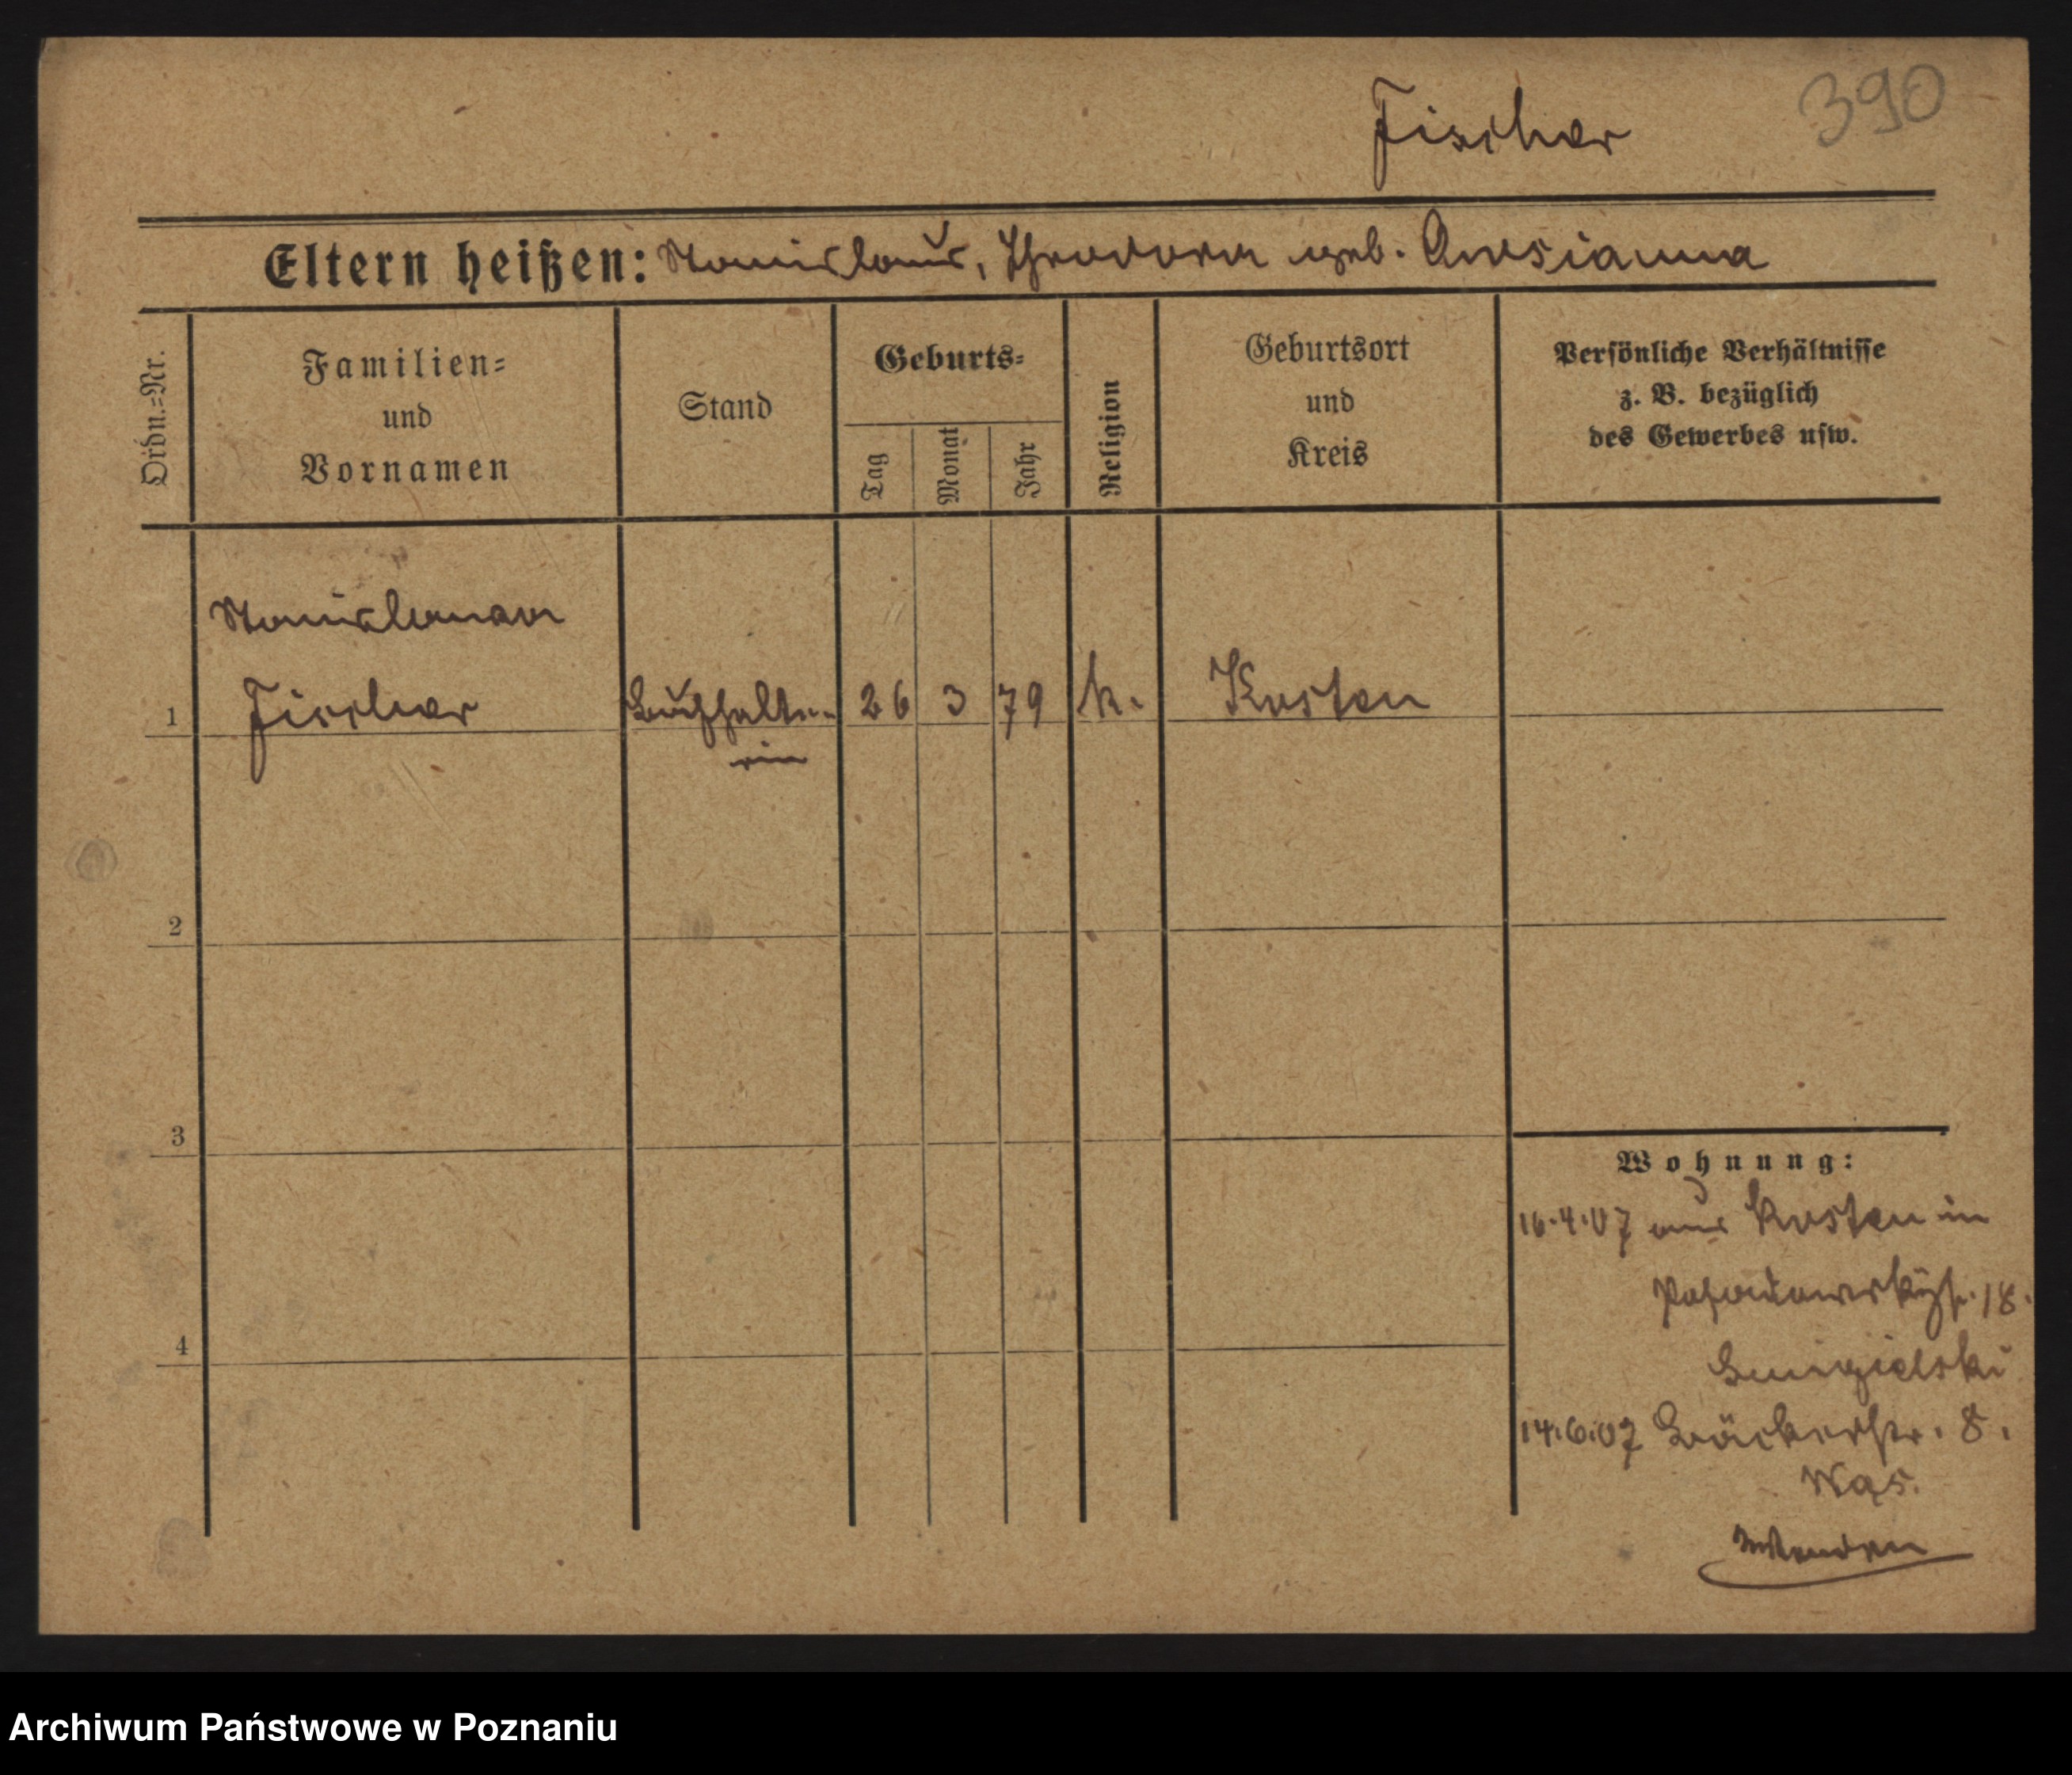 390
Fischer
Eltern heißen: Stanislaus, Theodora geb.
Ordn.=Nr.
Familien=
und
Vornamen
Stand
Geburts=
Tag
Monat
Jahr
Religion
Geburtsort
und
Kreis
Persönliche Verhältnisse
z. B. bezüglich
des Gewerbes usw.
Stanislawa
1 Fischer Buchhalte- 26 3 79 k. Kosten
rin
2
3
4
Wohnung:
16.4.07 aus Kosten in
18.
14.6.07 Bäckerstr. 8.
Wenden
Archiwum Państwowe w Poznaniu